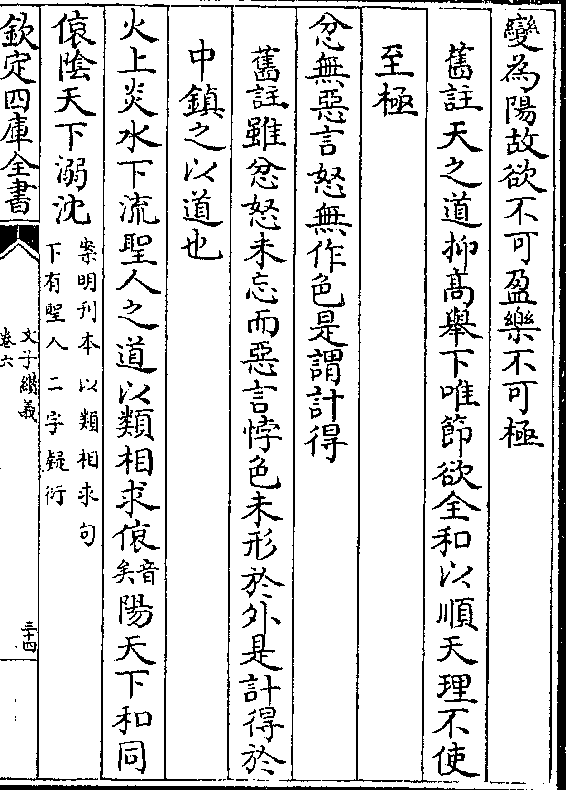 變為陽故欲不可盈樂不可極
舊註天之道抑高舉下唯節欲全和以順天理不使
至極
忿無惡言怒無作色是謂計得
舊註雖忿怒未忘而惡言悖色未形於外是計得於
中鎮之以道也
火上炎水下流聖人之道以類相求偯音矣陽天下和同
偯陰天下溺沈案明刊本以類相求句
下有聖人二字疑衍
欽定四庫全書
文子纘義
卷六
三十四